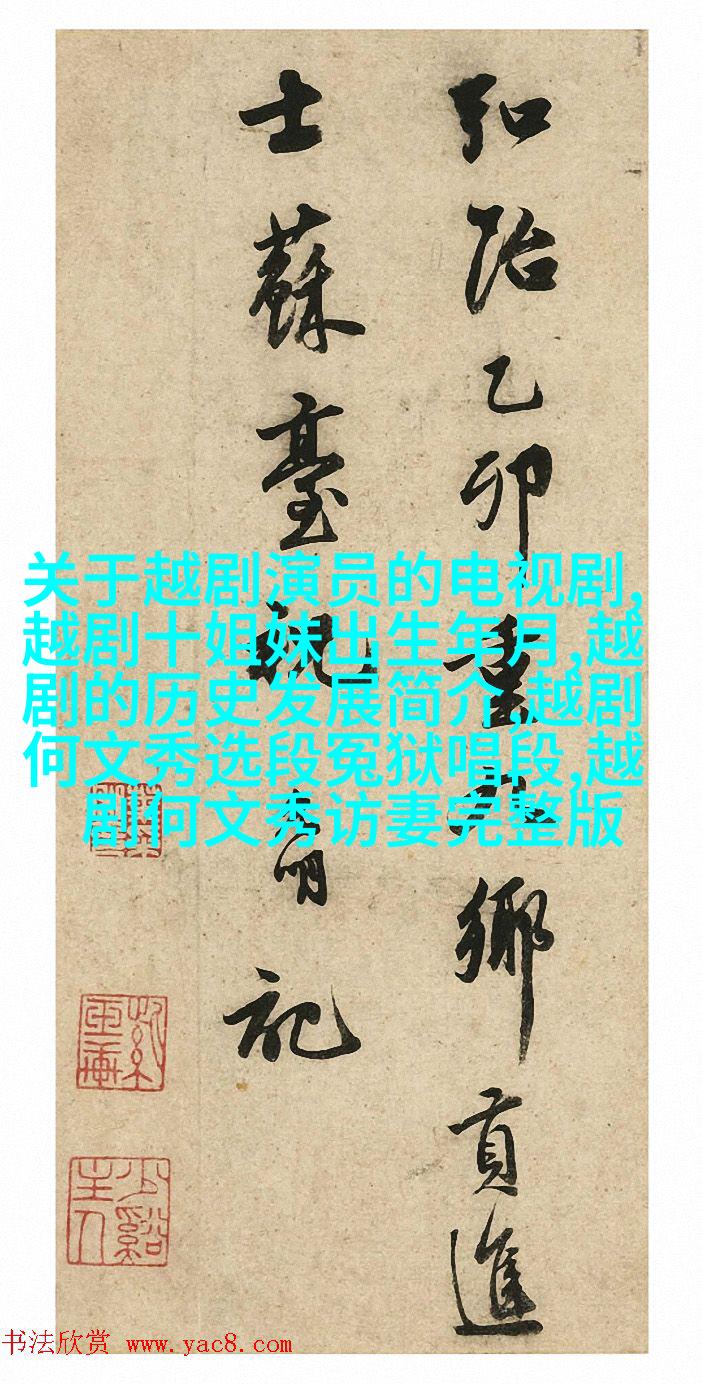 弘治乙卯重九鄉貢進
士蘇臺祝允明記
关于越剧演员的电视剧,
越剧十姐妹出生年月,越
剧的历史发展简介,越剧
何文秀选段冤狱唱段,越
剧何文秀访妻完整版
少谿
主人
书法欣赏 www.yac8.com